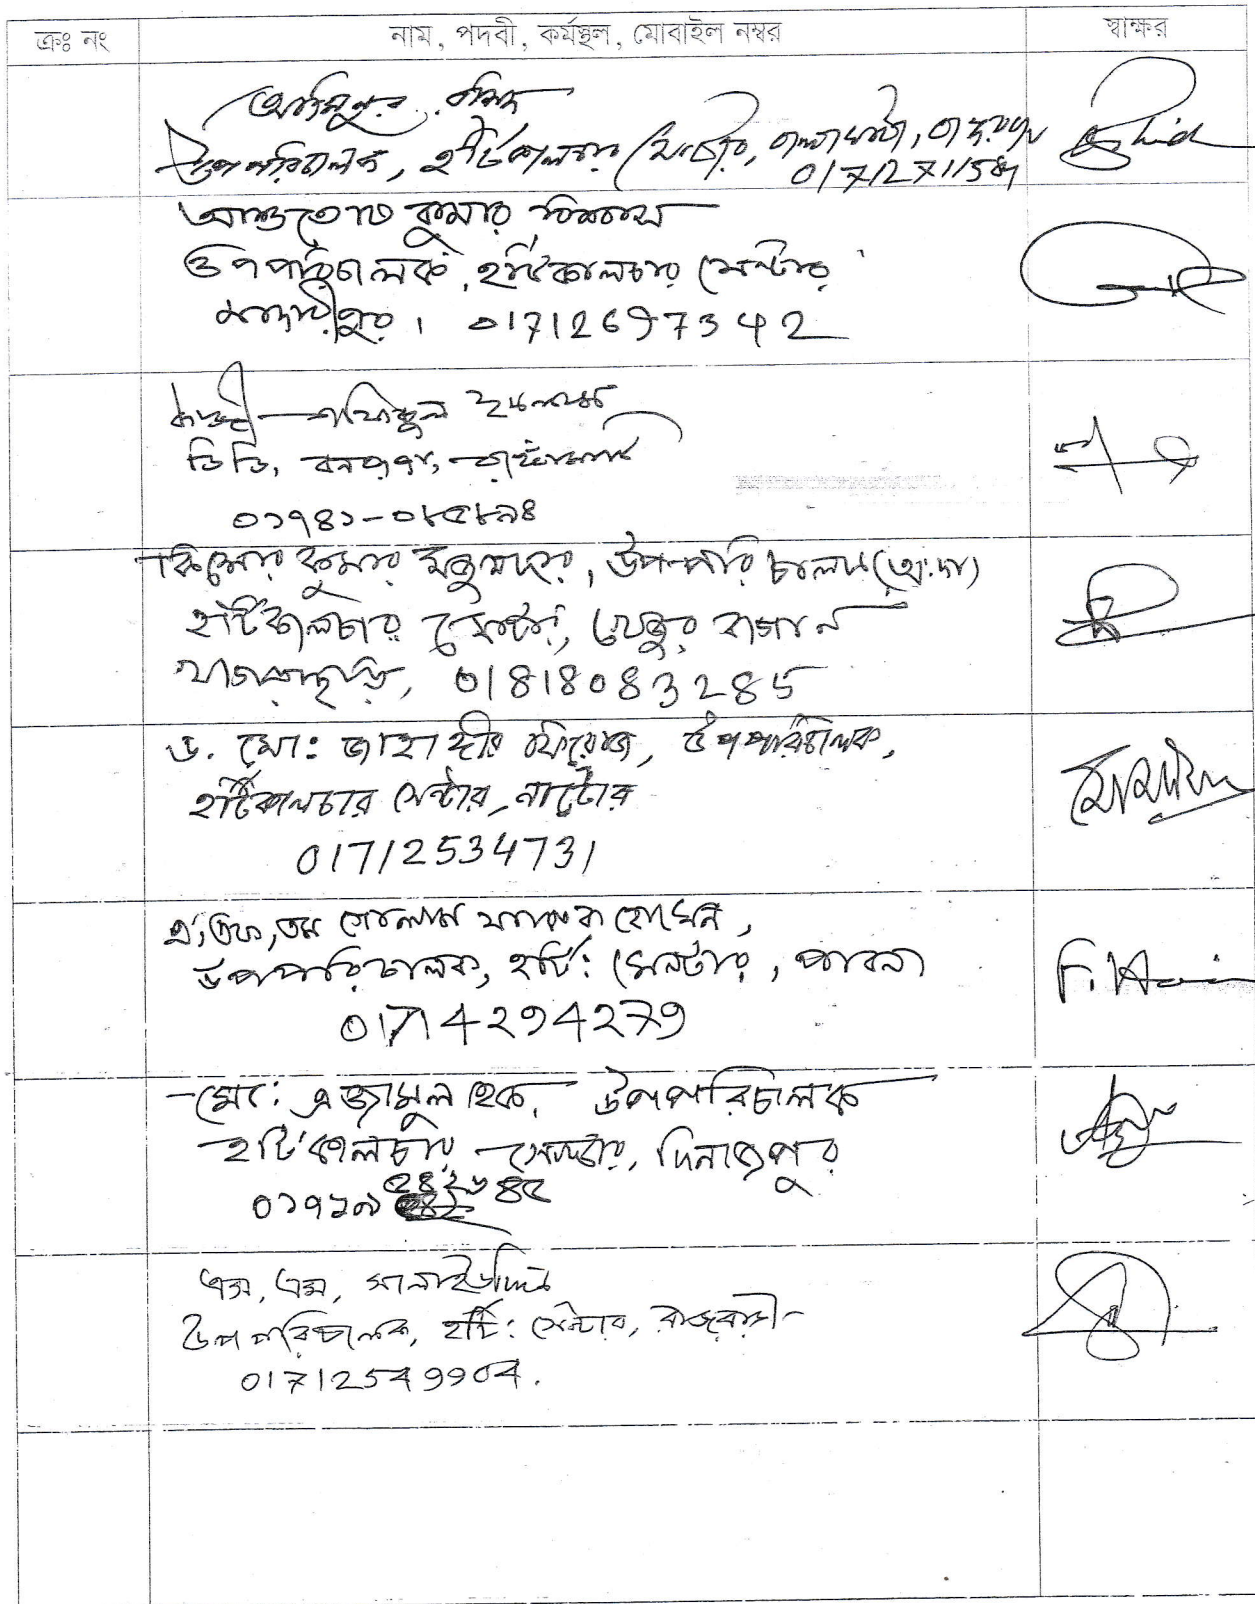 ক্রঃ নং নাম, পদবী, কর্মস্থল, মোবাইল নম্বর স্বাক্ষর
উপপরিচালক, হর্টিকালচার সেন্টার,
আশুতোষ কুমার বিশ্বাস
উপপরিচালক, হর্টিকালচার সেন্টার
মাদারীপুর। 01712697342
কাজী শফিকুল ইসলাম
ডি ডি, বনরূপা, রাঙ্গামাটি
০১৭৪১-০৮৫৮৯৪
কিশোর কুমার মজুমদার, উপ-পরিচালক (অ:দা)
হর্টিকালচার সেন্টার, খেজুর বাগান
খাগড়াছড়ি, 01818083285
ড. মো: জাহাঙ্গীর ফিরোজ, উপপরিচালক,
হর্টিকালচার সেন্টার, নাটোর
01712534731
এ, এফ, এম গোলাম ফারুক হোসেন,
উপপরিচালক, হর্টি: সেন্টার, পাবনা
01714294279
মো: এজামুল হক, উপপরিচালক
হর্টিকালচার সেন্টার, দিনাজপুর
এস, এম, সালাহউদ্দিন
উপপরিচালক, হর্টি: সেন্টার, রাজবাড়ী
01712549904.